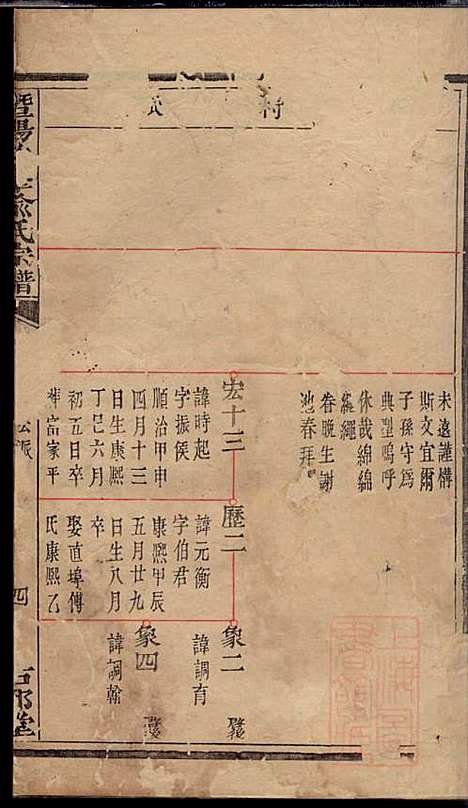 未遠謹構
斯文宜爾
子孫守為
典型嗚呼
休哉綿綿
繩繩
眷晚生謝
池春拜
宏十三
諱時起
字振侯
順治甲申
四月十三
日生康熙
丁巳六月
初五日卒
葬富家平
歷二
諱元衡
字伯君
康熙甲辰
五月廿九
日生八月
卒
娶直埠傅
氏康熙乙
象二
諱調育
象四
諱調翰
暨陽
俞氏宗譜
四